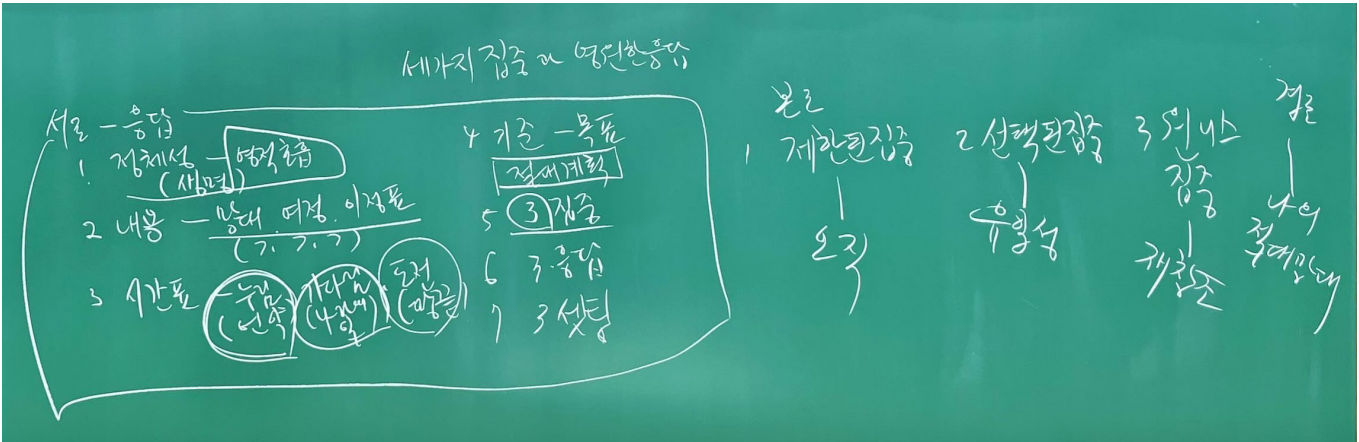 세가지 집중과 영원한 응답
서론 - 응답
1. 정체성 - 영적호흡
(생명)
2 내용 - 망대. 여정. 이정표
(7. 7. 7)
3 시간표 - 누림 기다림 도전
(언약)
4 기준 - 목표
절대계획
5 ③ 집중
6 3. 응답
7 3 셋팅
본론
1 제한된집중
오직
2 선택된집중
유일성
3 원니스
집중
재창조
결론
나의
절대망대